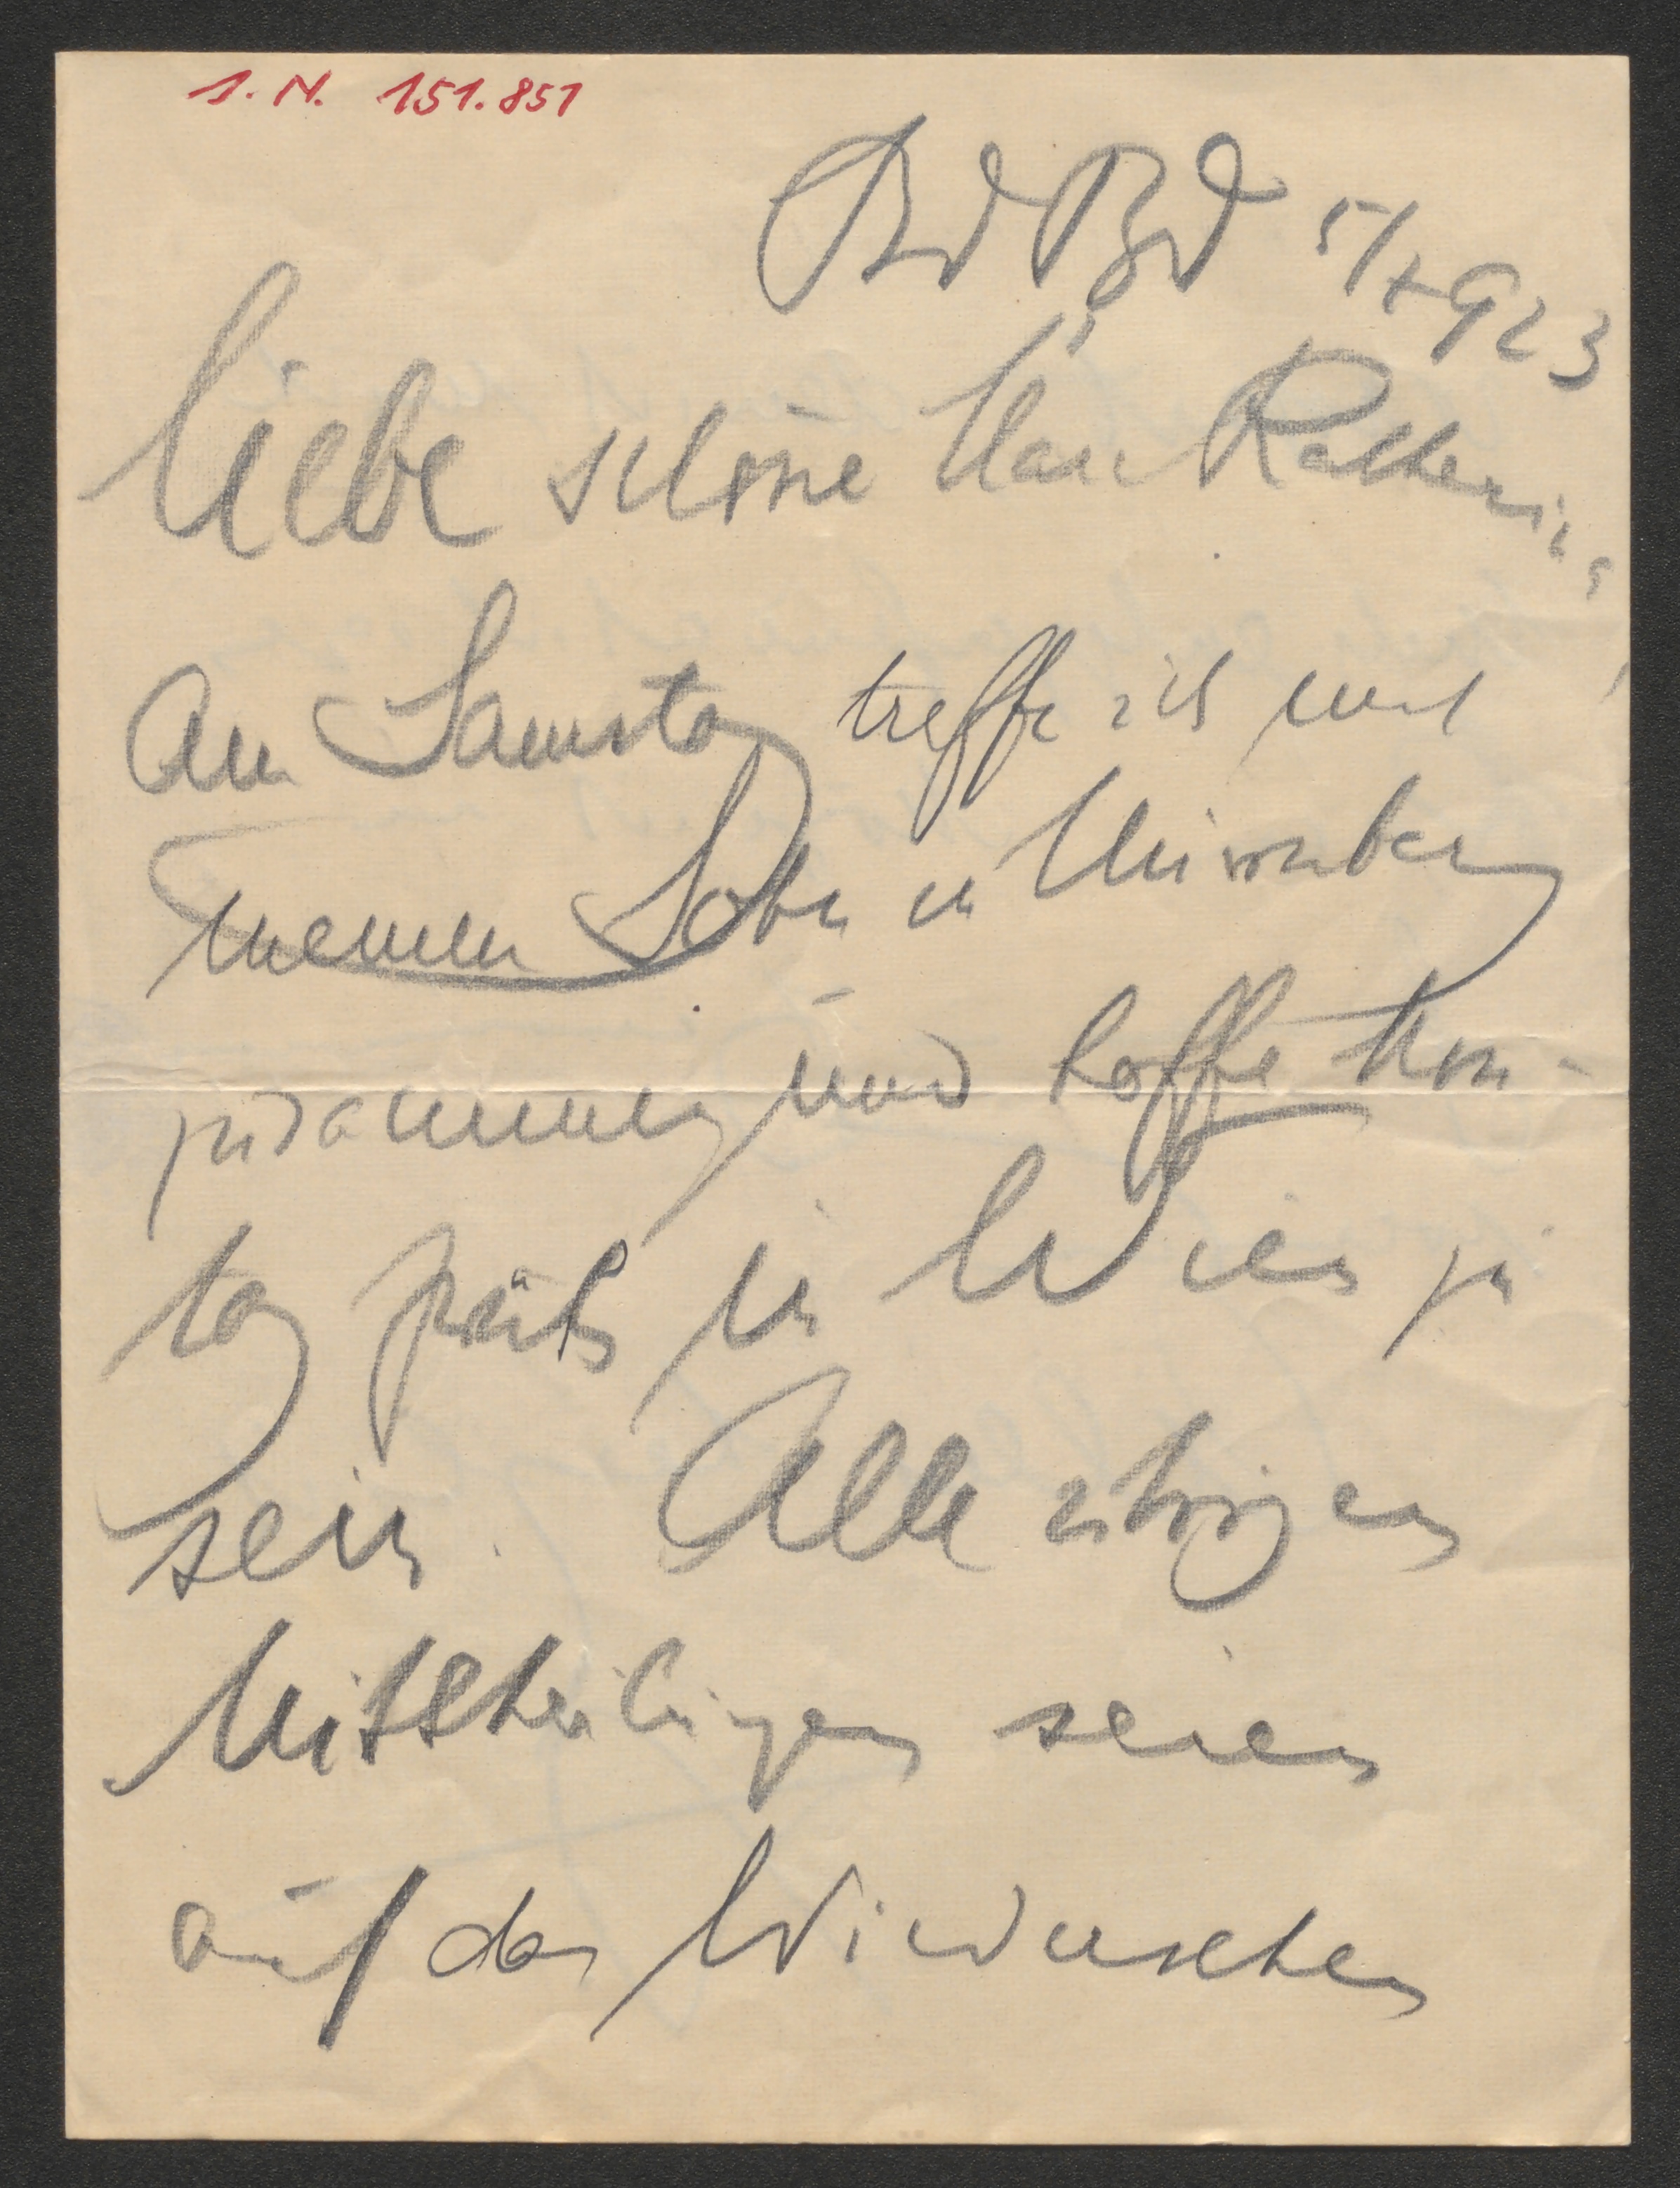 I. N. 151.851
BdBd 5/X 923
Liebe schöne Clara Katharina,
Am Samstag treffe ich mit
meinem Sohn in Nürnberg
zusammen und hoffe Mon-
tag früh in Wien zu
sein. Alle übrigen
Mittheilungen seien
auf das Wiedersehen